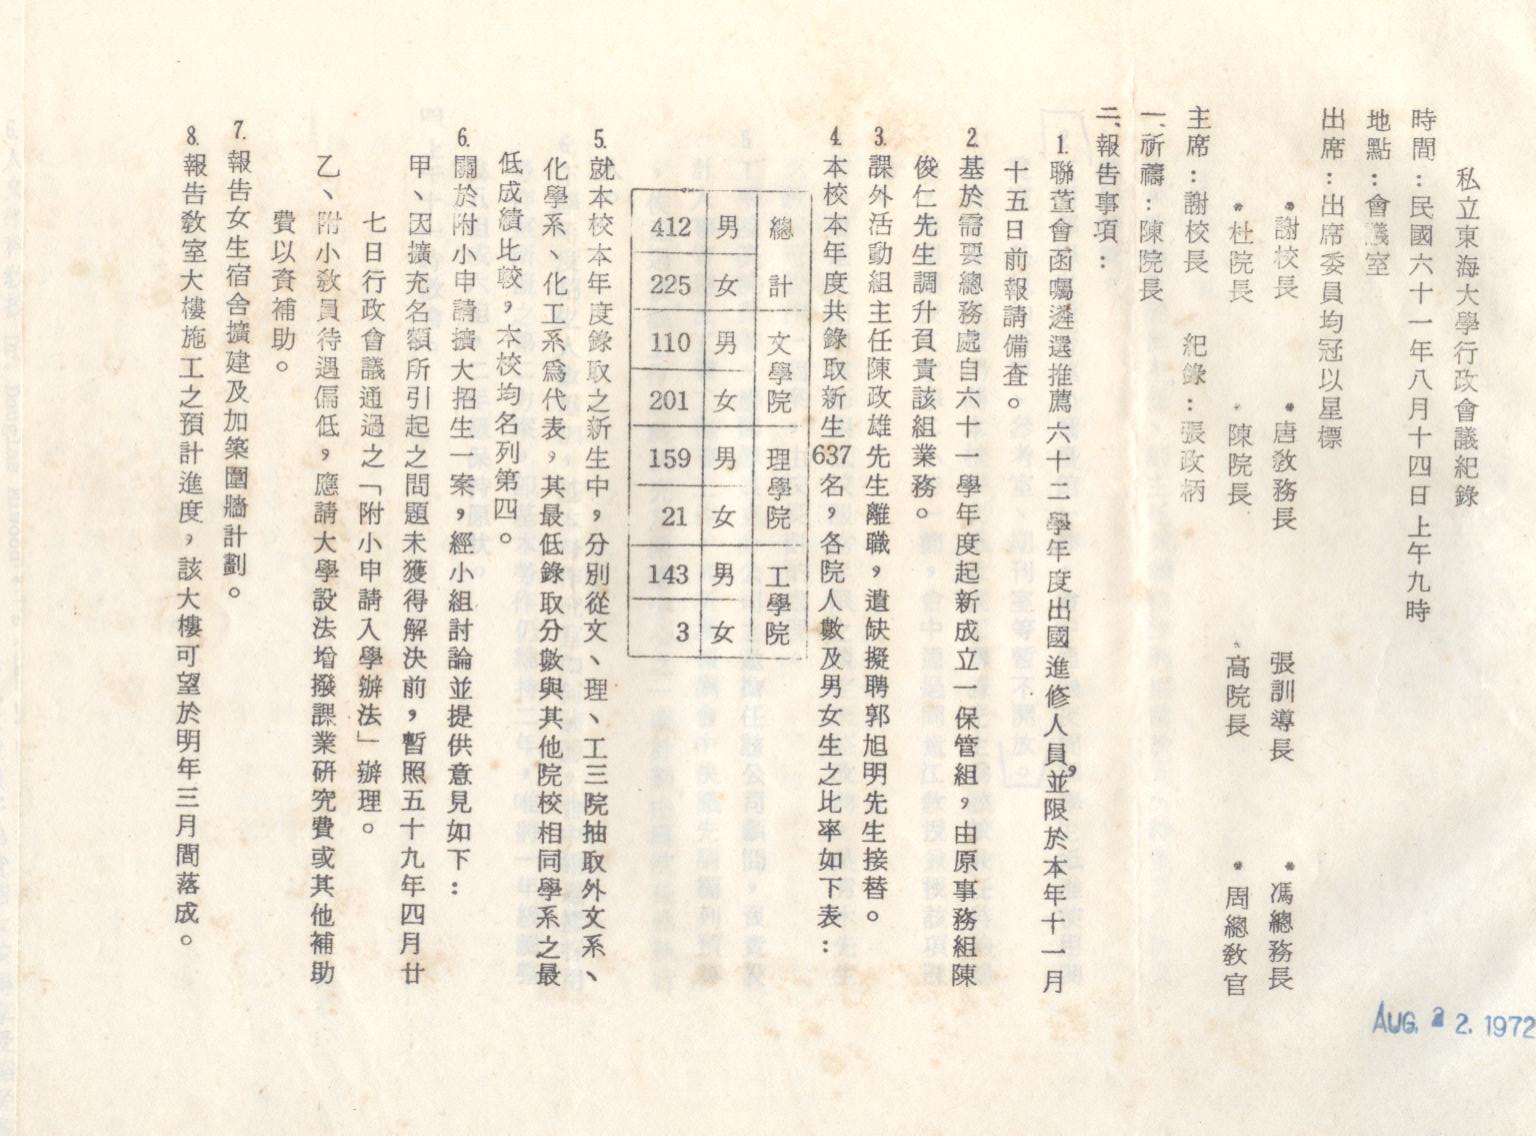 私立東海大學行政會議紀錄
時間：民國六十一年八月十四日上午九時
地點：會議室
出席：出席委員均冠以星標
*謝校長 *唐敎務長 張訓導長 *馮總務長
*杜院長 *陳院長 *高院長 *周總敎官
主席：謝校長 紀錄：張政柄
一、祈禱：陳院長
二、報告事項：
1. 聯董會函囑遴選推薦六十二學年度出國進修人員，並限於本年十一月
十五日前報請備查。
2. 基於需要總務處自六十一學年度起新成立一保管組，由原事務組陳
俊仁先生調升負責該組業務。
3. 課外活動組主任陳政雄先生離職，遺缺擬聘郭旭明先生接替。
4. 本校本年度共錄取新生637名，各院人數及男女生之比率如下表：
總計 文學院 理學院 工學院
男 女 男 女 男 女 男 女
412 225 110 201 159 21 143 3
5. 就本校本年度錄取之新生中，分別從文、理、工三院抽取外文系、
化學系、化工系爲代表，其最低錄取分數與其他院校相同學系之最
低成績比較，本校均名列第四。
6. 關於附小申請擴大招生一案，經小組討論並提供意見如下：
甲、因擴充名額所引起之問題未獲得解決前，暫照五十九年四月廿
七日行政會議通過之「附小申請入學辦法」辦理。
乙、附小敎員待遇偏低，應請大學設法增撥課業研究費或其他補助
費以資補助。
7. 報告女生宿舍擴建及加築圍牆計劃。
8. 報告敎室大樓施工之預計進度，該大樓可望於明年三月間落成。
AUG. 22. 1972